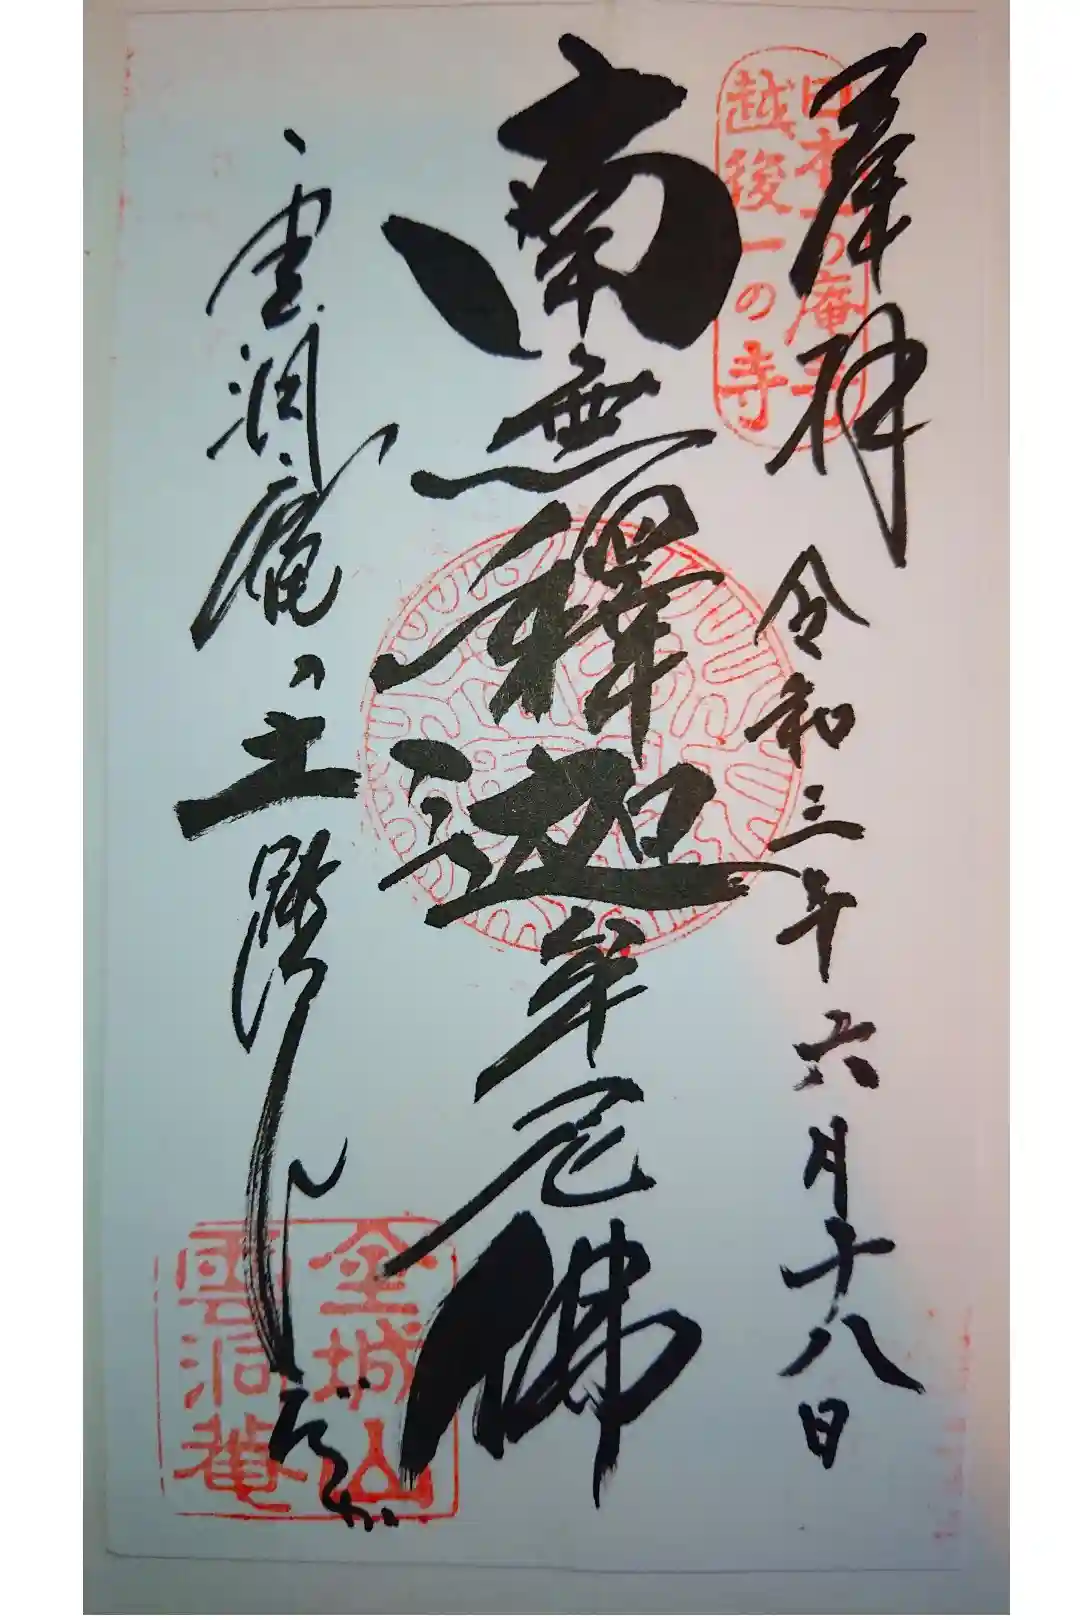 奉拝
令和三年六月十八日
日本一の庵寺
越後一の寺
南無釋迦牟尼佛
雲洞庵の土踏んだか
金城山
雲洞菴